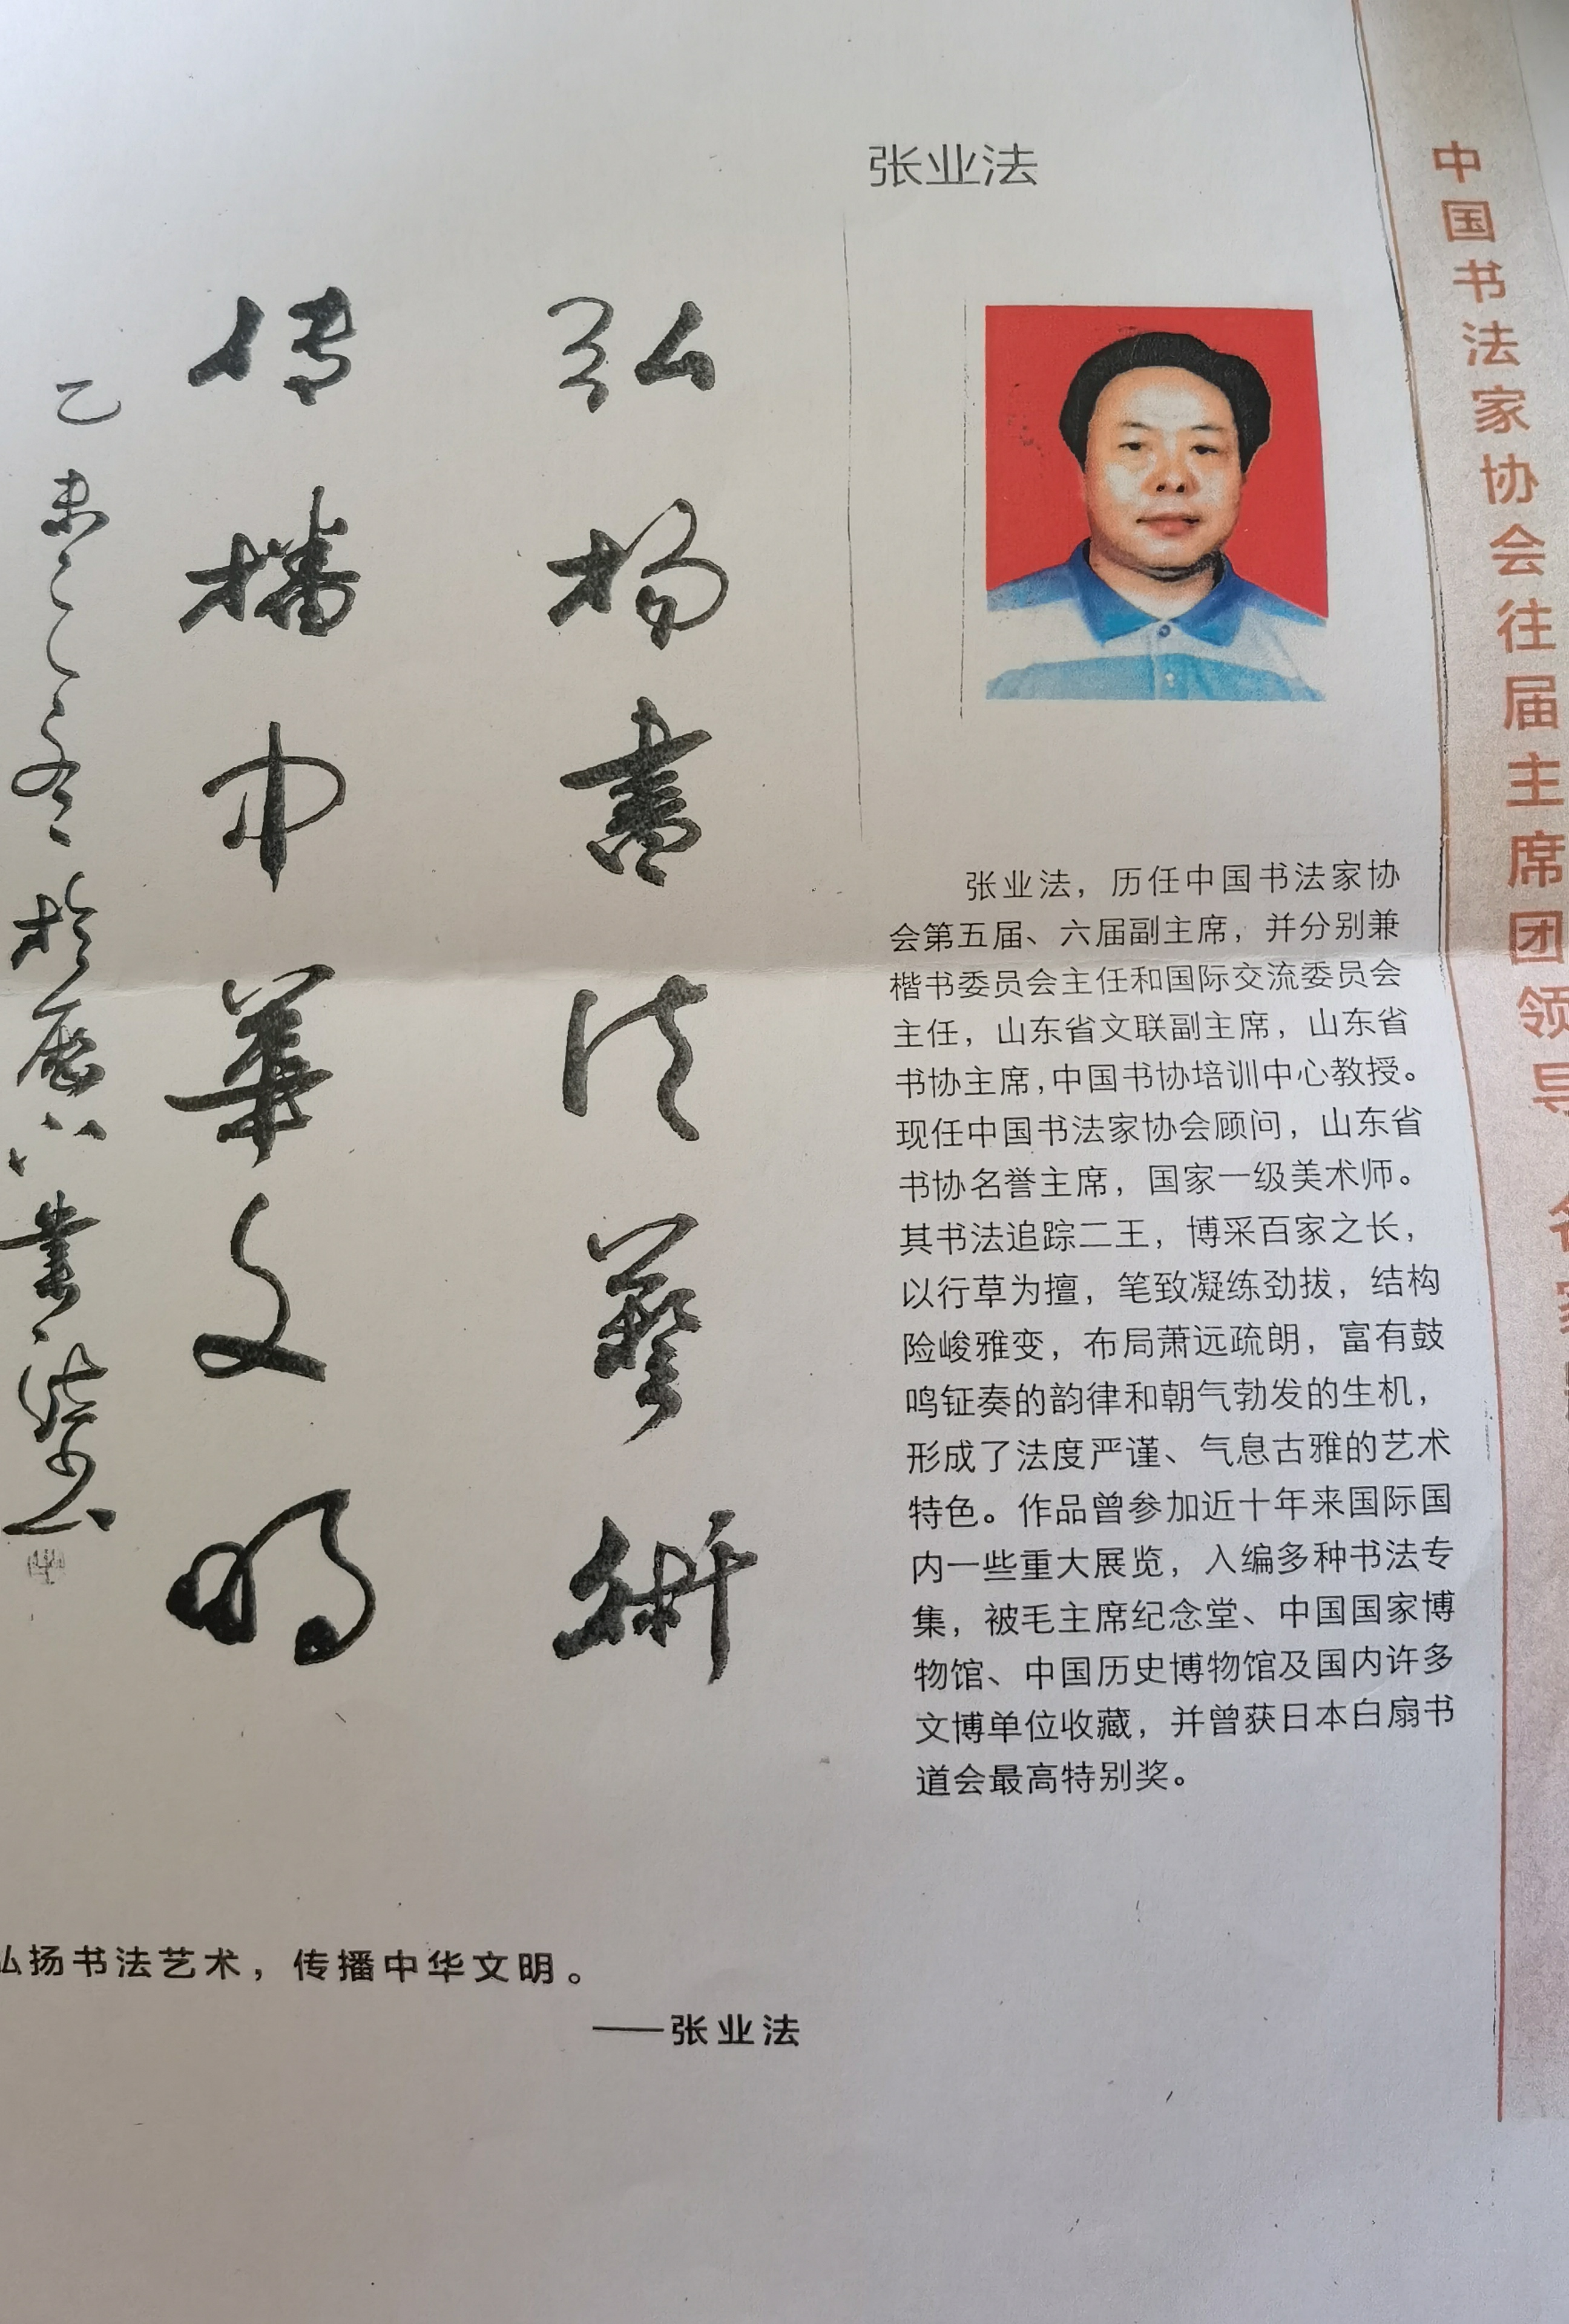 张业法
中国书法家协会往届主席团领导
弘扬书法藝術
传播中華文明
乙未之冬於历下業法书
张业法，历任中国书法家协
会第五届、六届副主席，并分别兼
楷书委员会主任和国际交流委员会
主任，山东省文联副主席，山东省
书协主席，中国书协培训中心教授。
现任中国书法家协会顾问，山东省
书协名誉主席，国家一级美术师。
其书法追踪二王，博采百家之长，
以行草为擅，笔致凝练劲拔，结构
险峻雅变，布局萧远疏朗，富有鼓
鸣钲奏的韵律和朝气勃发的生机，
形成了法度严谨、气息古雅的艺术
特色。作品曾参加近十年来国际国
内一些重大展览，入编多种书法专
集，被毛主席纪念堂、中国国家博
物馆、中国历史博物馆及国内许多
文博单位收藏，并曾获日本白扇书
道会最高特别奖。
弘扬书法艺术，传播中华文明。
——张业法